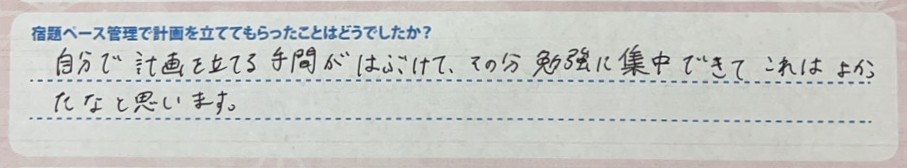 宿題ペース管理で計画を立ててもらったことはどうでしたか？
自分で計画を立てる手間がはぶけて、その分勉強に集中できてこれはよかっ
たなと思います。